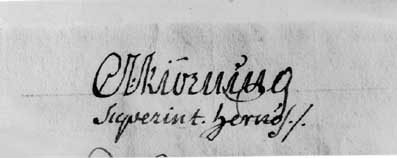 OlKiörning
Superint. Hernös./.